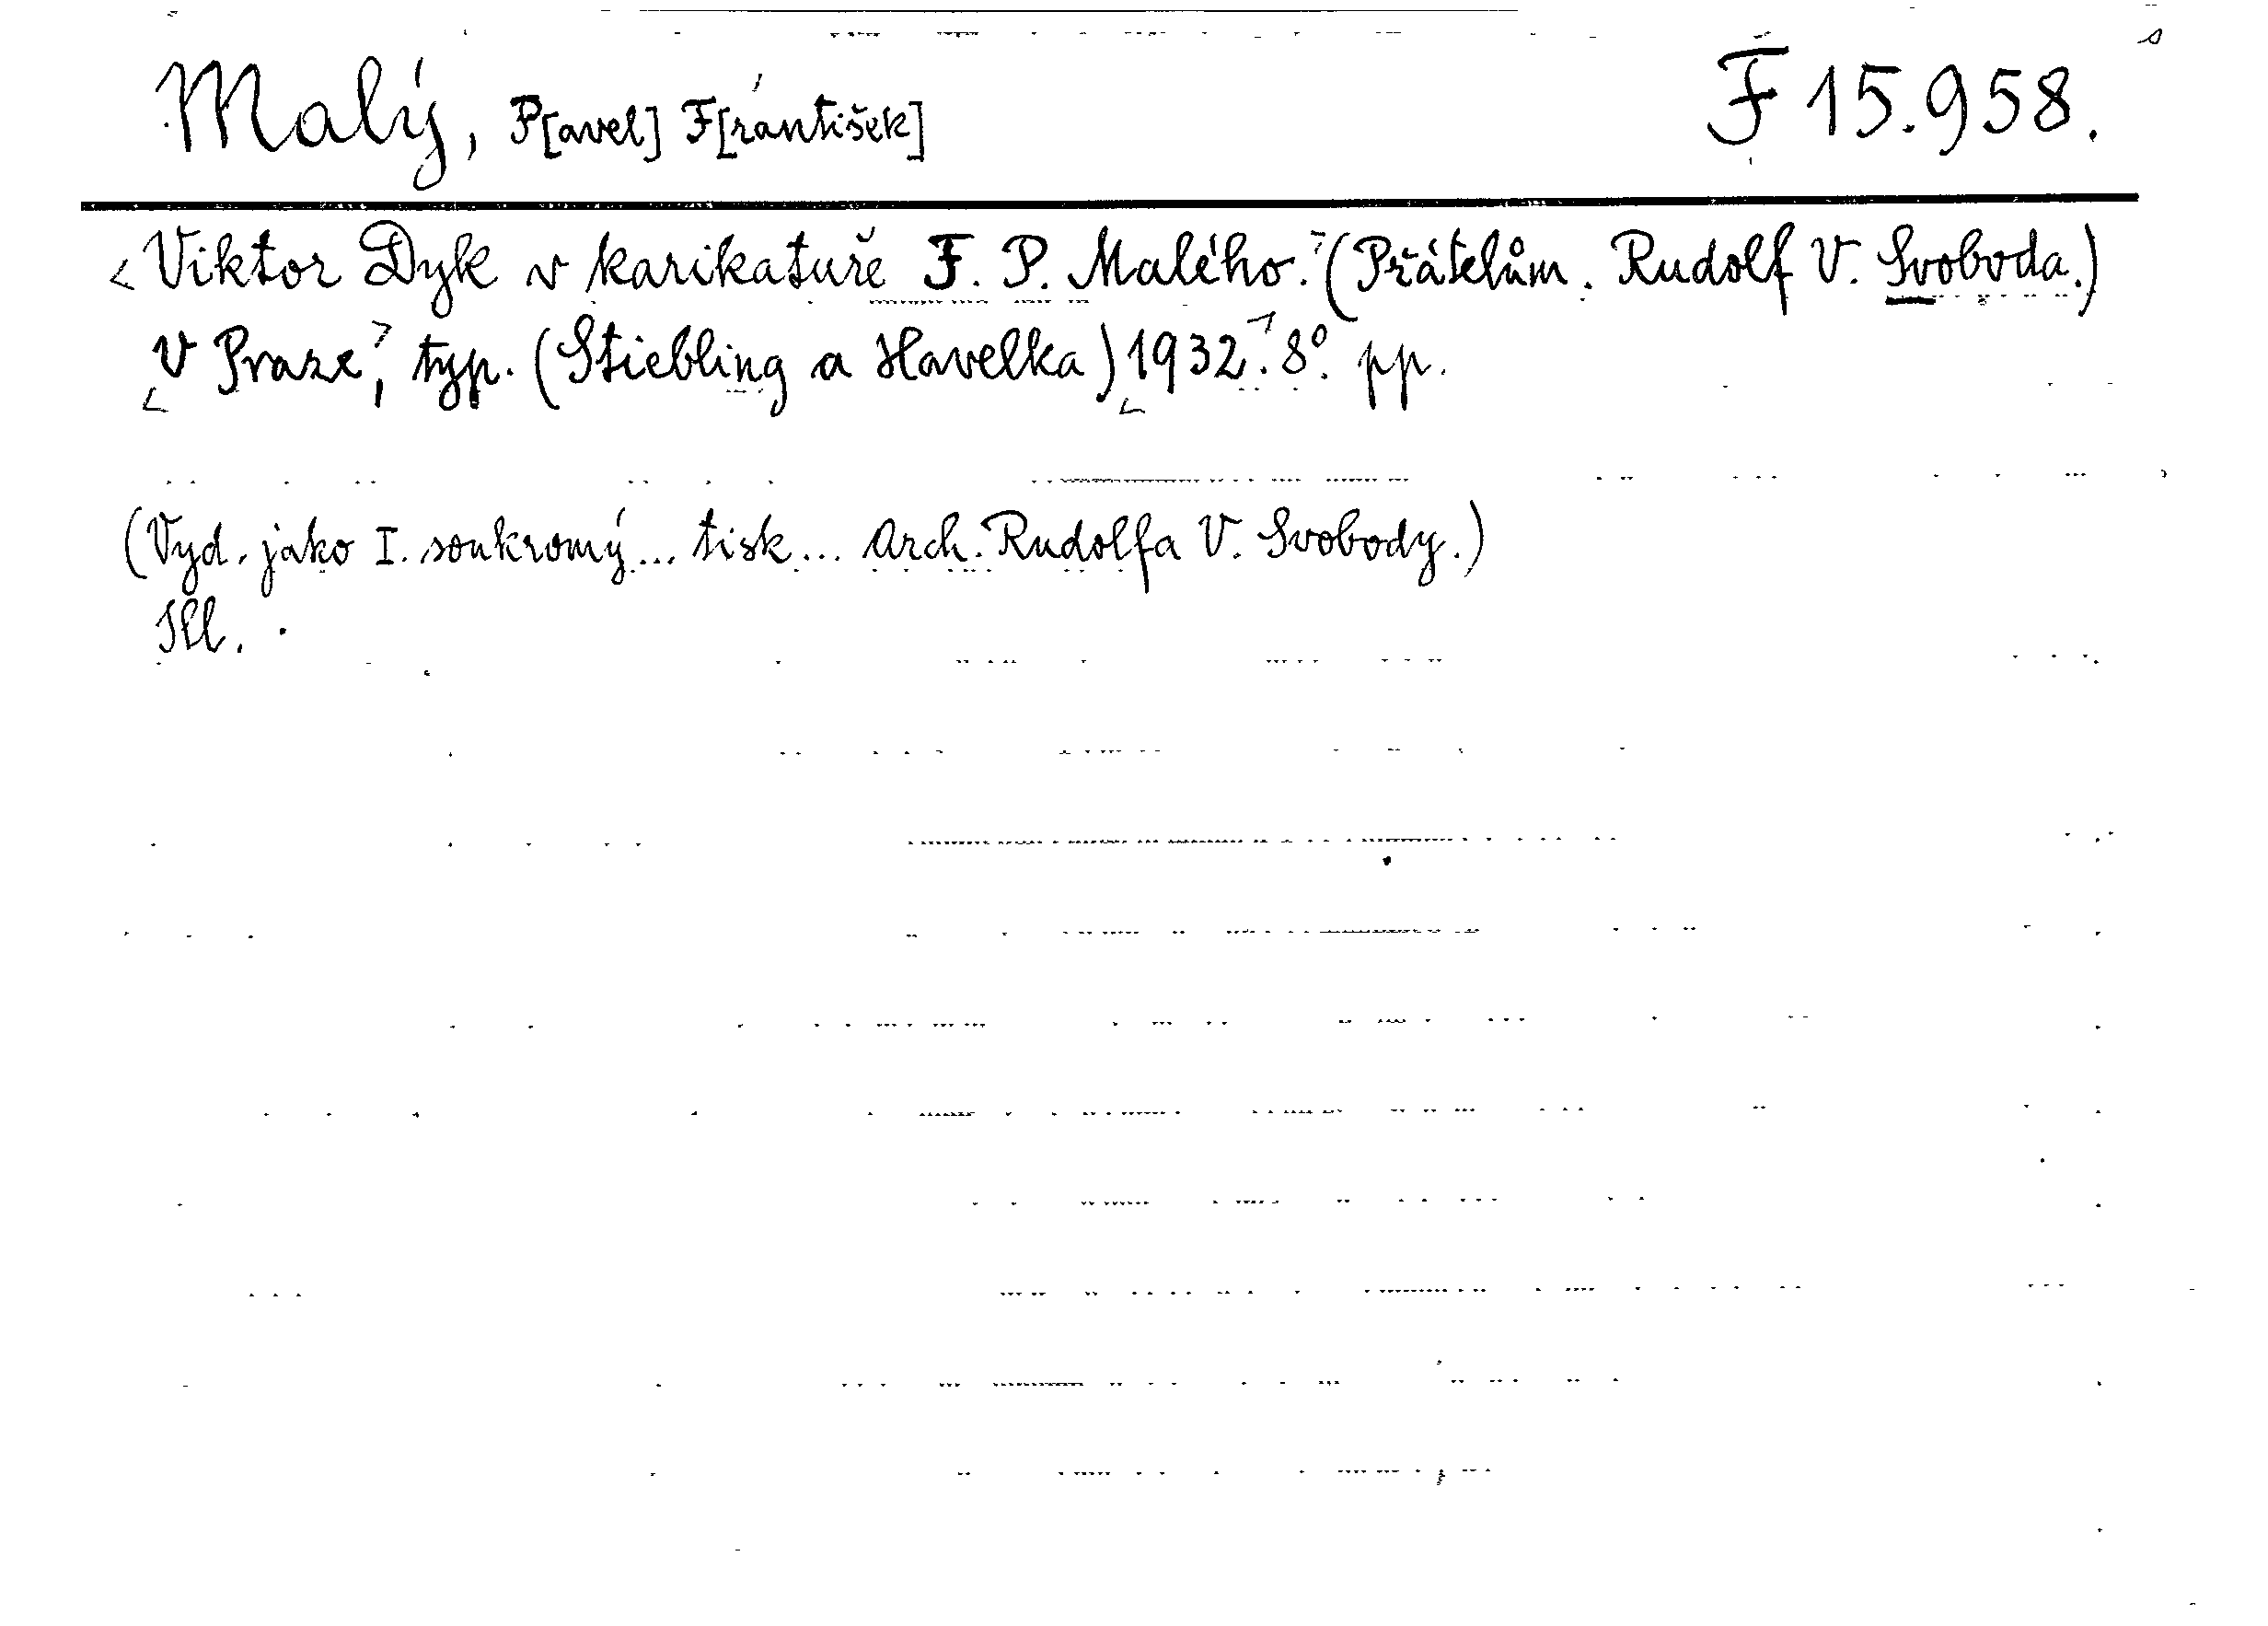 Malý, P[avel] F[rántišek] F 15.958.
<Viktor Dyk v karikatuře F. P. Malého.> (Přátelům. Rudolf V. Svoboda.)
<V Praze>, typ. (Stiebling a Havelka) <1932>. 8°. pp.
(Vyd. jako I. soukromý... tisk... Arch. Rudolfa V. Svobody.)
Ill.